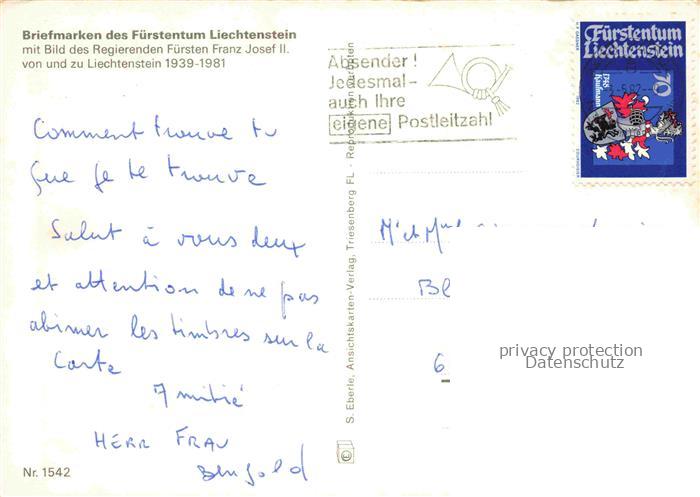 Briefmarken des Fürstentum Liechtenstein
mit Bild des Regierenden Fürsten Franz Josef II.
von und zu Liechtenstein 1939-1981
Comment trouve tu
que je te trouve
Salut à vous deux
et attention de ne pas
abimer les timbres sur la
Carte
Amitié
HERR FRAU
Nr. 1542
S. Eberle, Ansichtskarten-Verlag, Triesenberg FL - Reproduktion verboten
Absender !
Jedesmal-
auch Ihre
eigene Postleitzahl
Fürstentum
Liechtenstein
70
1748
Kaufmann
M et M
Bl
6
privacy protection
Datenschutz